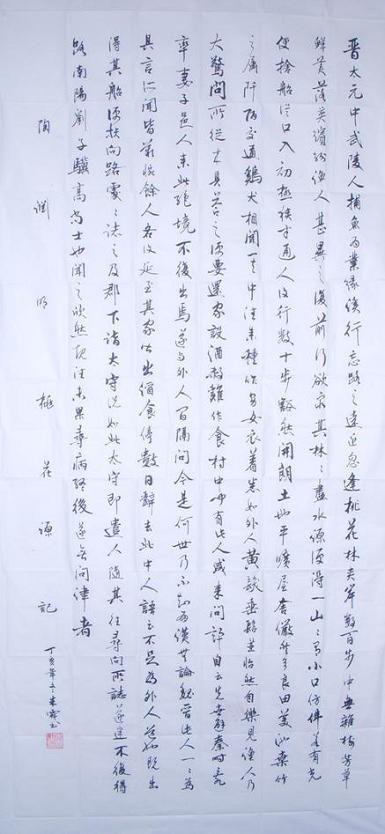 晋太元中武陵人捕魚為業緣溪行忘路之遠近忽逢桃花林夾岸數百步中無雜樹芳草
鮮美落英繽紛漁人甚異之復前行欲窮其林々盡水源便得一山々有小口仿佛若有光
便捨船從口入初極狹才通人復行數十步豁然開朗土地平曠屋舍儼然有良田美池桑竹
之屬阡陌交通鷄犬相聞其中往來種作男女衣着悉如外人黄髮垂髫並怡然自樂見漁人乃
大驚問所從來具答之便要還家設酒殺雞作食村中聞有此人咸來問訊自云先世避秦時亂
率妻子邑人來此絕境不復出焉遂与外人間隔問今是何世乃不知有漢無論魏晉此人一一為
具言所聞皆嘆惋餘人各復延至其家皆出酒食停數日辭去此中人語云不足為外人道也既出
得其船便扶向路處々誌之及郡下詣太守說如此太守即遣人隨其往尋向所誌遂迷不復得
路南陽劉子驥高尚士也聞之欣然規往未果尋病終後遂無問津者
陶淵明桃花源記
丁亥年